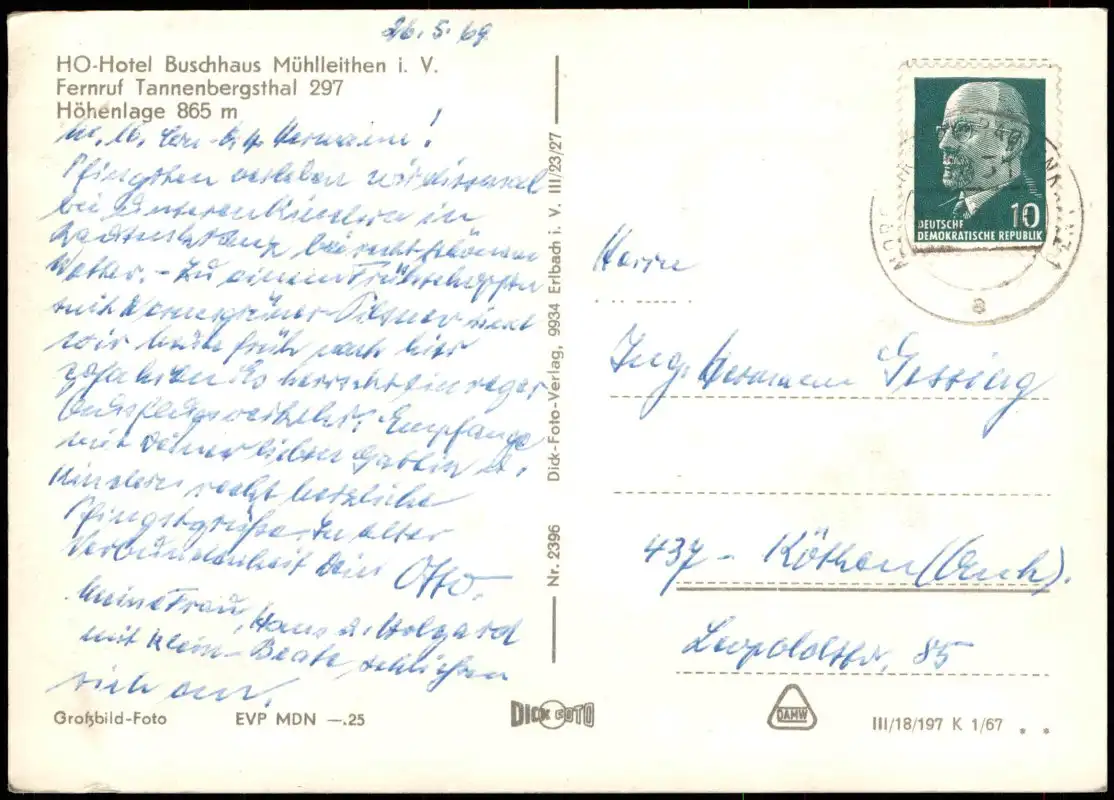 26.5.69
HO-Hotel Buschhaus Mühlleithen i. V.
Fernruf Tannenbergsthal 297
Höhenlage 865 m
Hermann!
Pfingsten verleben wir diesmal
bei unseren Kindern in
bei recht schönem
Wetter. - Zu einem Frühschoppen
mit Wernesgrüner Pilsner sind
wir heute früh nach hier
gefahren. Es herrscht ein reger
Ausflugsverkehr. Empfange
mit Deiner lieben Gattin u.
Kindern recht herzliche
Pfingstgrüße. In alter
Verbundenheit Dein Otto.
Meine Frau, Hans u. Holgard
mit Klein-Beate schließen
sich an.
Großbild-Foto EVP MDN —.25
Nr. 2396 Dick-Foto-Verlag, 9934 Erlbach i. V. III/23/27
DICK FOTO
10
DEUTSCHE
DEMOKRATISCHE REPUBLIK
a
Herrn
Ing. Hermann Gessing
437 - Köthen (Anh).
Leopoldstr. 85
DAMW
III/18/197 K 1/67